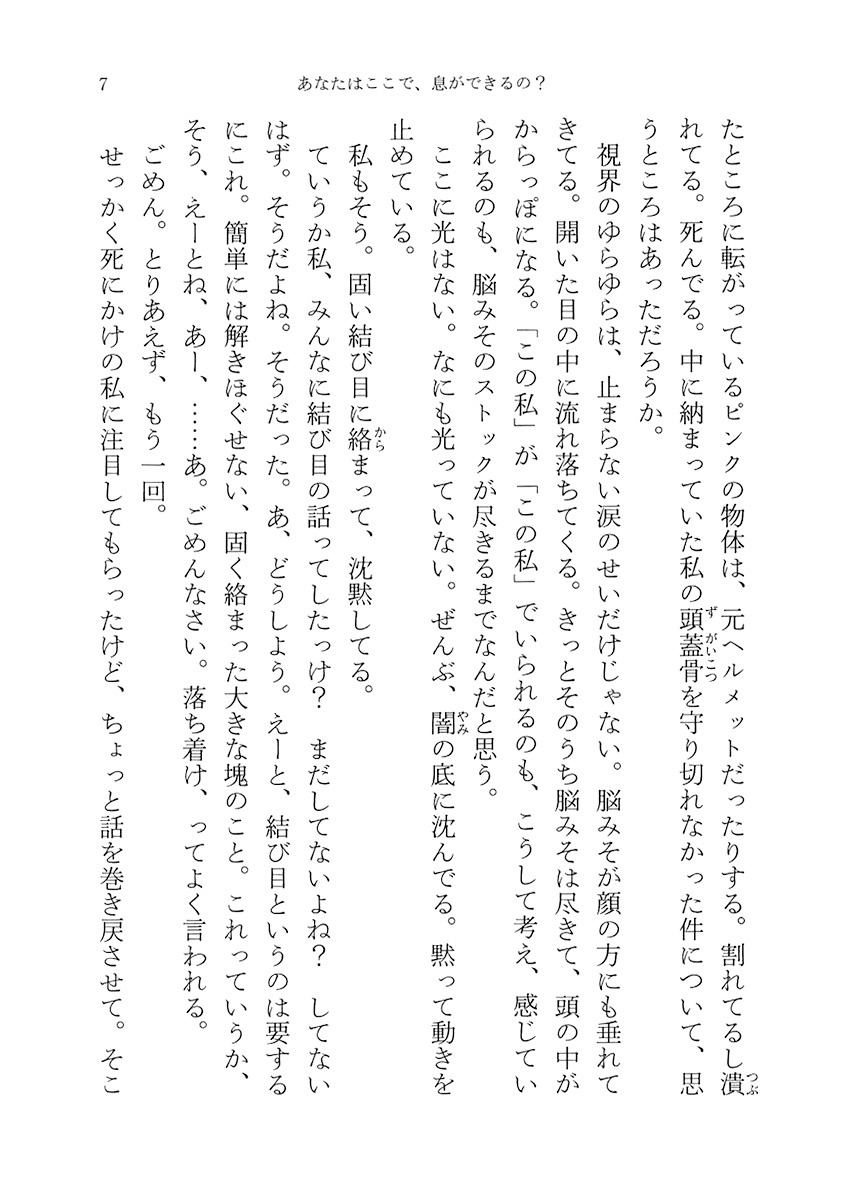 7
あなたはここで、息ができるの？
たところに転がっているピンクの物体は、元ヘルメットだったりする。割れてるし潰
れてる。死んでる。中に納まっていた私の頭蓋骨を守り切れなかった件について、思
うところはあっただろうか。
　視界のゆらゆらは、止まらない涙のせいだけじゃない。脳みそが顔の方にも垂れて
きてる。開いた目の中に流れ落ちてくる。きっとそのうち脳みそは尽きて、頭の中が
からっぽになる。「この私」が「この私」でいられるのも、こうして考え、感じてい
られるのも、脳みそのストックが尽きるまでなんだと思う。
　ここに光はない。なにも光っていない。ぜんぶ、闇の底に沈んでる。黙って動きを
止めている。
　私もそう。固い結び目に絡まって、沈黙してる。
　ていうか私、みんなに結び目の話ってしたっけ？　まだしてないよね？　してない
はず。そうだよね。そうだった。あ、どうしよう。えーと、結び目というのは要する
にこれ。簡単には解きほぐせない、固く絡まった大きな塊のこと。これっていうか、
そう、えーとね、あー、……あ。ごめんなさい。落ち着け、ってよく言われる。
　ごめん。とりあえず、もう一回。
　せっかく死にかけの私に注目してもらったけど、ちょっと話を巻き戻させて。そこ